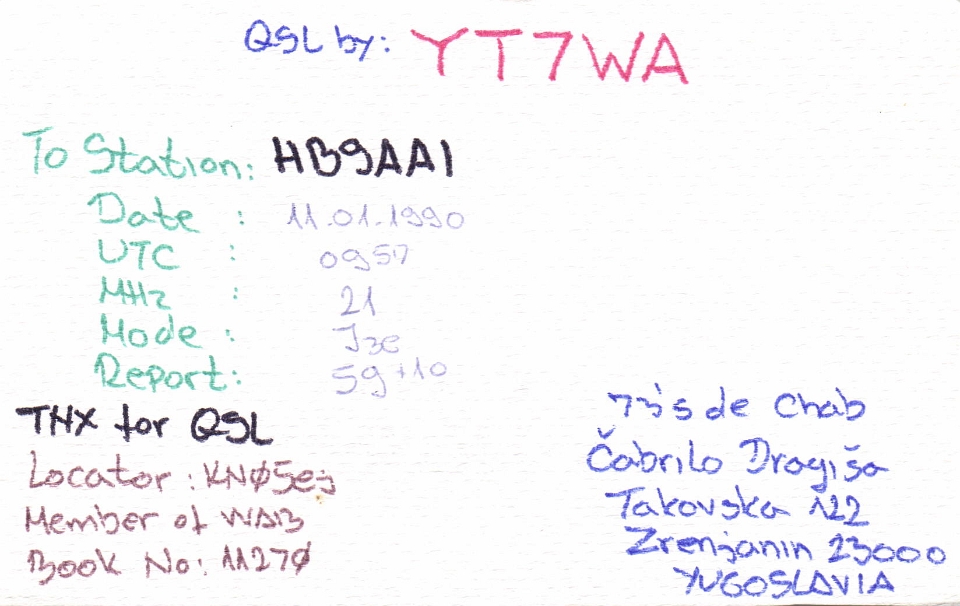 QSL by: YT7WA
To Station: HB9AAI
Date : 11.01.1990
UTC : 0957
MHz : 21
Mode : J3e
Report: 59+10
TNX for QSL
Locator: KNØ5ej
Member of WAB
Book No: 1127Ø
73's de Chab
Čabrilo Dragiša
Takovska 122
Zrenjanin 23000
YUGOSLAVIA